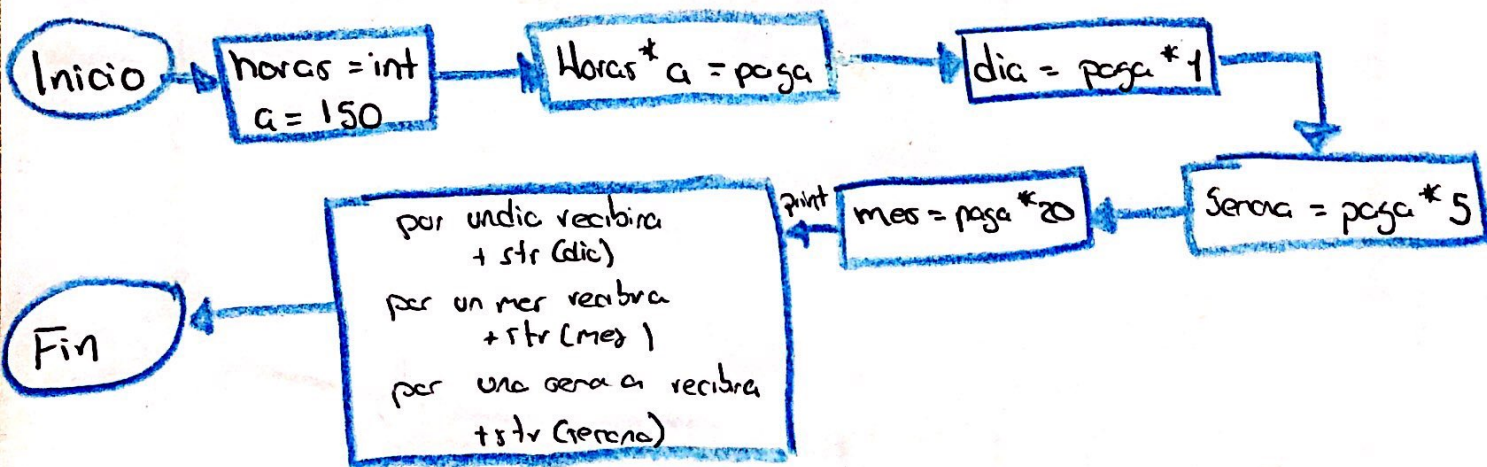 Inicio
horas = int
a = 150
Horas * a = paga
dia = paga * 1
Semana = paga * 5
mes = paga * 20
print
por un dia recibira
+ str (dia)
por un mes recibira
+ str (mes)
por una semana recibira
+ str (semana)
Fin